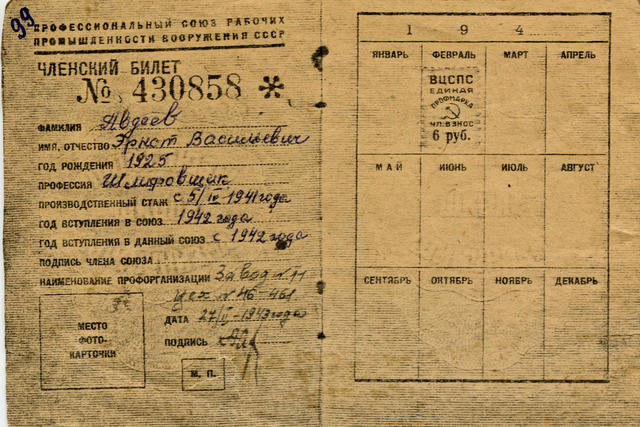 99
ПРОФЕССИОНАЛЬНЫЙ СОЮЗ РАБОЧИХ
ПРОМЫШЛЕННОСТИ ВООРУЖЕНИЯ СССР
ЧЛЕНСКИЙ БИЛЕТ
№ 430858 *
ФАМИЛИЯ Авдеев
ИМЯ, ОТЧЕСТВО Эрнст Васильевич
ГОД РОЖДЕНИЯ 1925
ПРОФЕССИЯ Шлифовщик
ПРОИЗВОДСТВЕННЫЙ СТАЖ с 5/IV 1941 года
ГОД ВСТУПЛЕНИЯ В СОЮЗ 1942 года
ГОД ВСТУПЛЕНИЯ В ДАННЫЙ СОЮЗ с 1942 года
ПОДПИСЬ ЧЛЕНА СОЮЗА
НАИМЕНОВАНИЕ ПРОФОРГАНИЗАЦИИ Завод н 11
цех н 46-461
ДАТА 27/II-1943 года
ПОДПИСЬ
МЕСТО
ФОТО-
КАРТОЧКИ
М. П.
1 9 4
ЯНВАРЬ ФЕВРАЛЬ МАРТ АПРЕЛЬ
ВЦСПС
ЕДИНАЯ
ПРОФМАРКА
ЧЛ. ВЗНОС
6 руб.
МАЙ ИЮНЬ ИЮЛЬ АВГУСТ
СЕНТЯБРЬ ОКТЯБРЬ НОЯБРЬ ДЕКАБРЬ